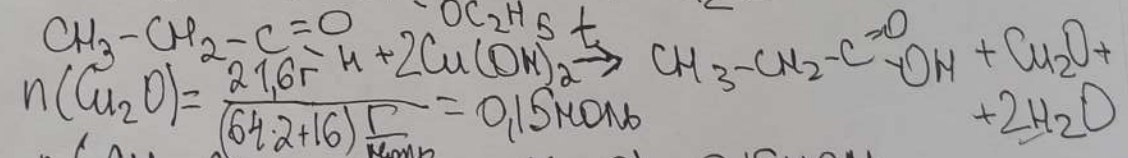 OC₂H₅
CH₃-CH₂-C=O H + 2Cu(OH)₂ t→ CH₃-CH₂-C=O OH + Cu₂O +
+ 2H₂O
n(Cu₂O) = 21,6г / (64·2+16) г/моль = 0,15 моль